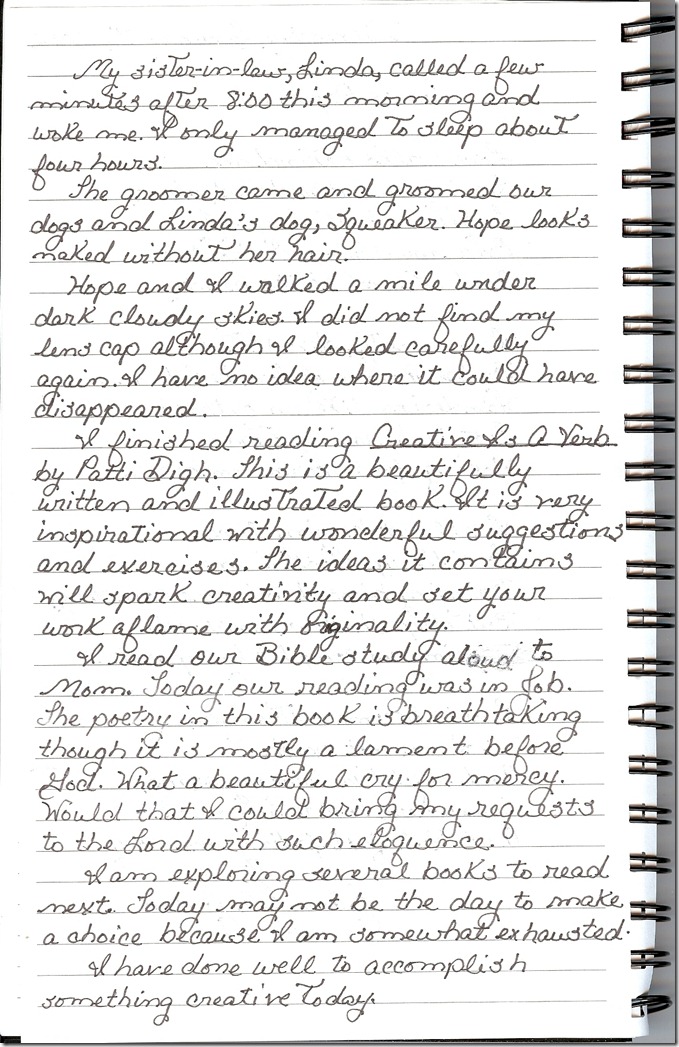 My sister-in-law, Linda, called a few
minutes after 8:00 this morning and
woke me. I only managed to sleep about
four hours.
The groomer came and groomed our
dogs and Linda's dog, Squeaker. Hope looks
naked without her hair.
Hope and I walked a mile under
dark cloudy skies. I did not find my
lens cap although I looked carefully
again. I have no idea where it could have
disappeared.
I finished reading Creative Is A Verb
by Patti Digh. This is a beautifully
written and illustrated book. It is very
inspirational with wonderful suggestions
and exercises. The ideas it contains
will spark creativity and set your
work aflame with originality.
I read our Bible study aloud to
Mom. Today our reading was in Job.
The poetry in this book is breathtaking
though it is mostly a lament before
God. What a beautiful cry for mercy.
Would that I could bring my requests
to the Lord with such eloquence.
I am exploring several books to read
next. Today may not be the day to make
a choice because I am somewhat exhausted.
I have done well to accomplish
something creative today.